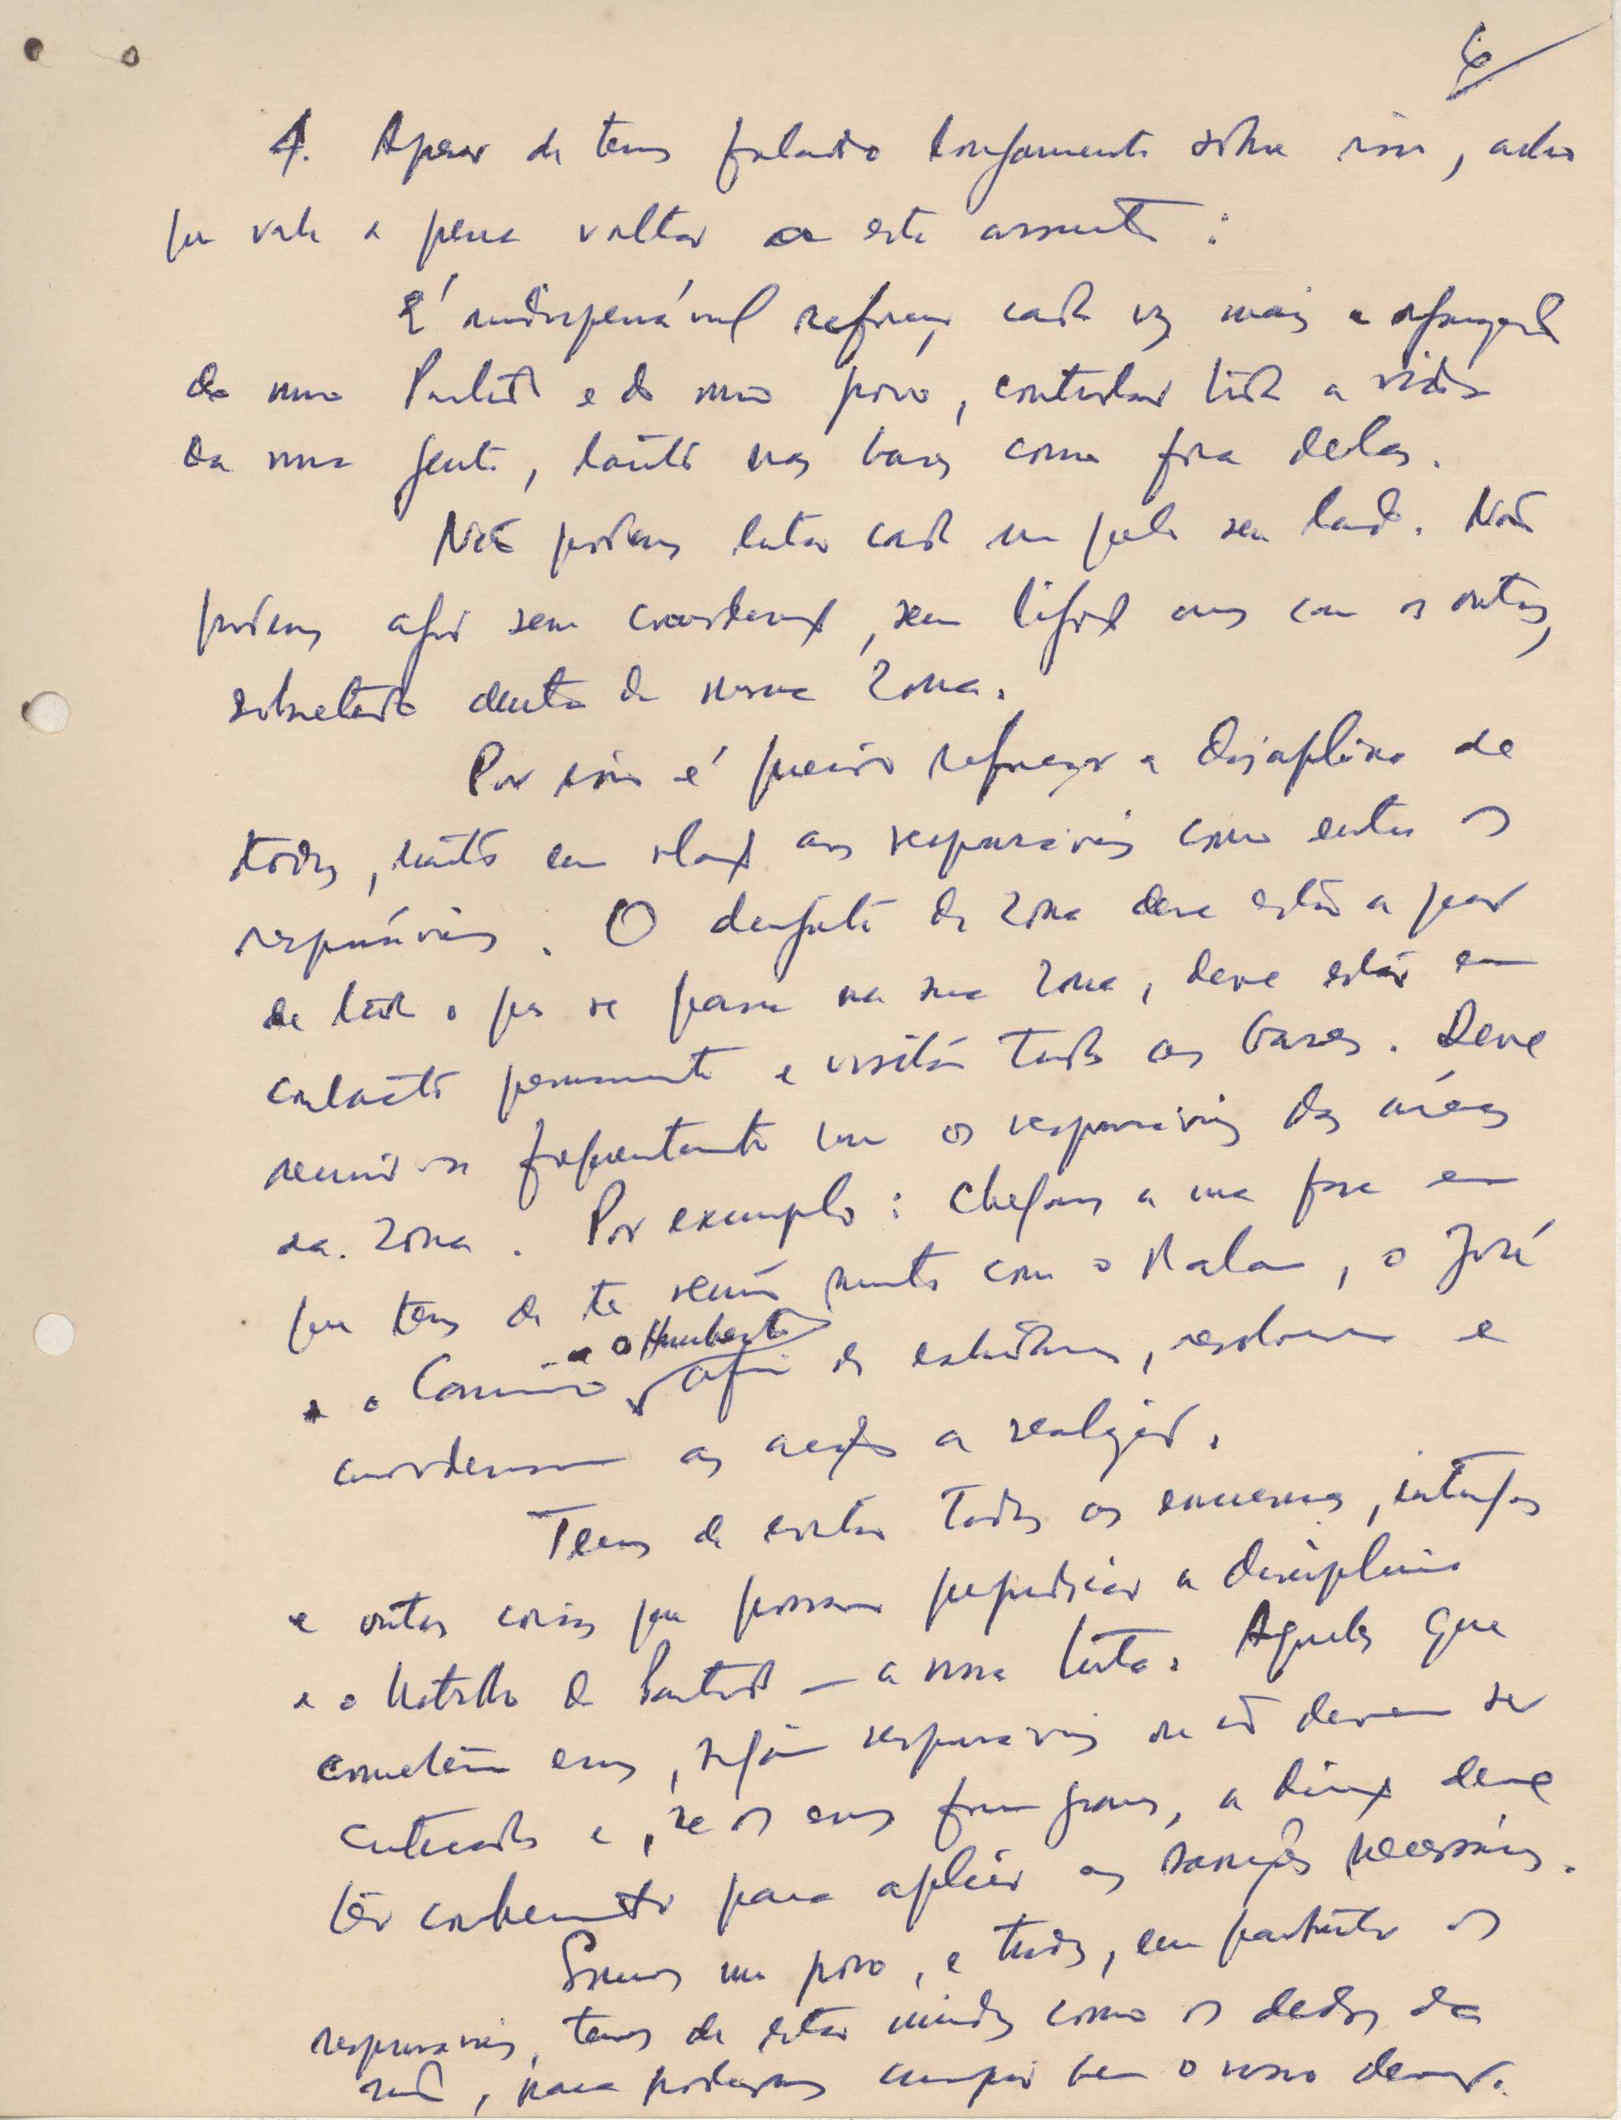 6
4. Apesar de termos falado longamente sobre isso, acho
que vale a pena voltar a este assunto:
É indispensável reforçar cada vez mais a organização
do nosso Partido e do nosso povo, controlar toda a vida
da nossa gente, tanto nas bases como fora delas.
Não podemos lutar cada um pelo seu lado. Não
podemos agir sem coordenação, sem ligação uns com os outros,
sobretudo dentro da mesma Zona.
Por isso é preciso reforçar a disciplina de
todos, tanto em relação aos responsáveis como entre os
responsáveis. O dirigente da Zona deve estar a par
de tudo o que se passa na sua Zona, deve estar em
contacto permanente e visitar todas as bases. Deve
reunir-se frequentemente com os responsáveis das áreas
da Zona. Por exemplo: Chegamos a uma fase em
que tens de te reunir muito com o Malan, o José
e o Camiro e o Humberto afim de estudarem, resolverem e
coordenarem as acções a realizar.
Temos de evitar todos os enervos, intrigas
e outras coisas que possam prejudicar a disciplina
e o trabalho do Partido — a nossa luta. Aqueles que
cometem erros, sejam responsáveis ou não devem ser
criticados e, se os erros forem graves, a direcção deve
ter conhecimento para aplicar as sanções necessárias.
Somos um povo, e todos, em particular os
responsáveis, temos de estar unidos como os dedos da
mão, para podermos cumprir bem o nosso dever.